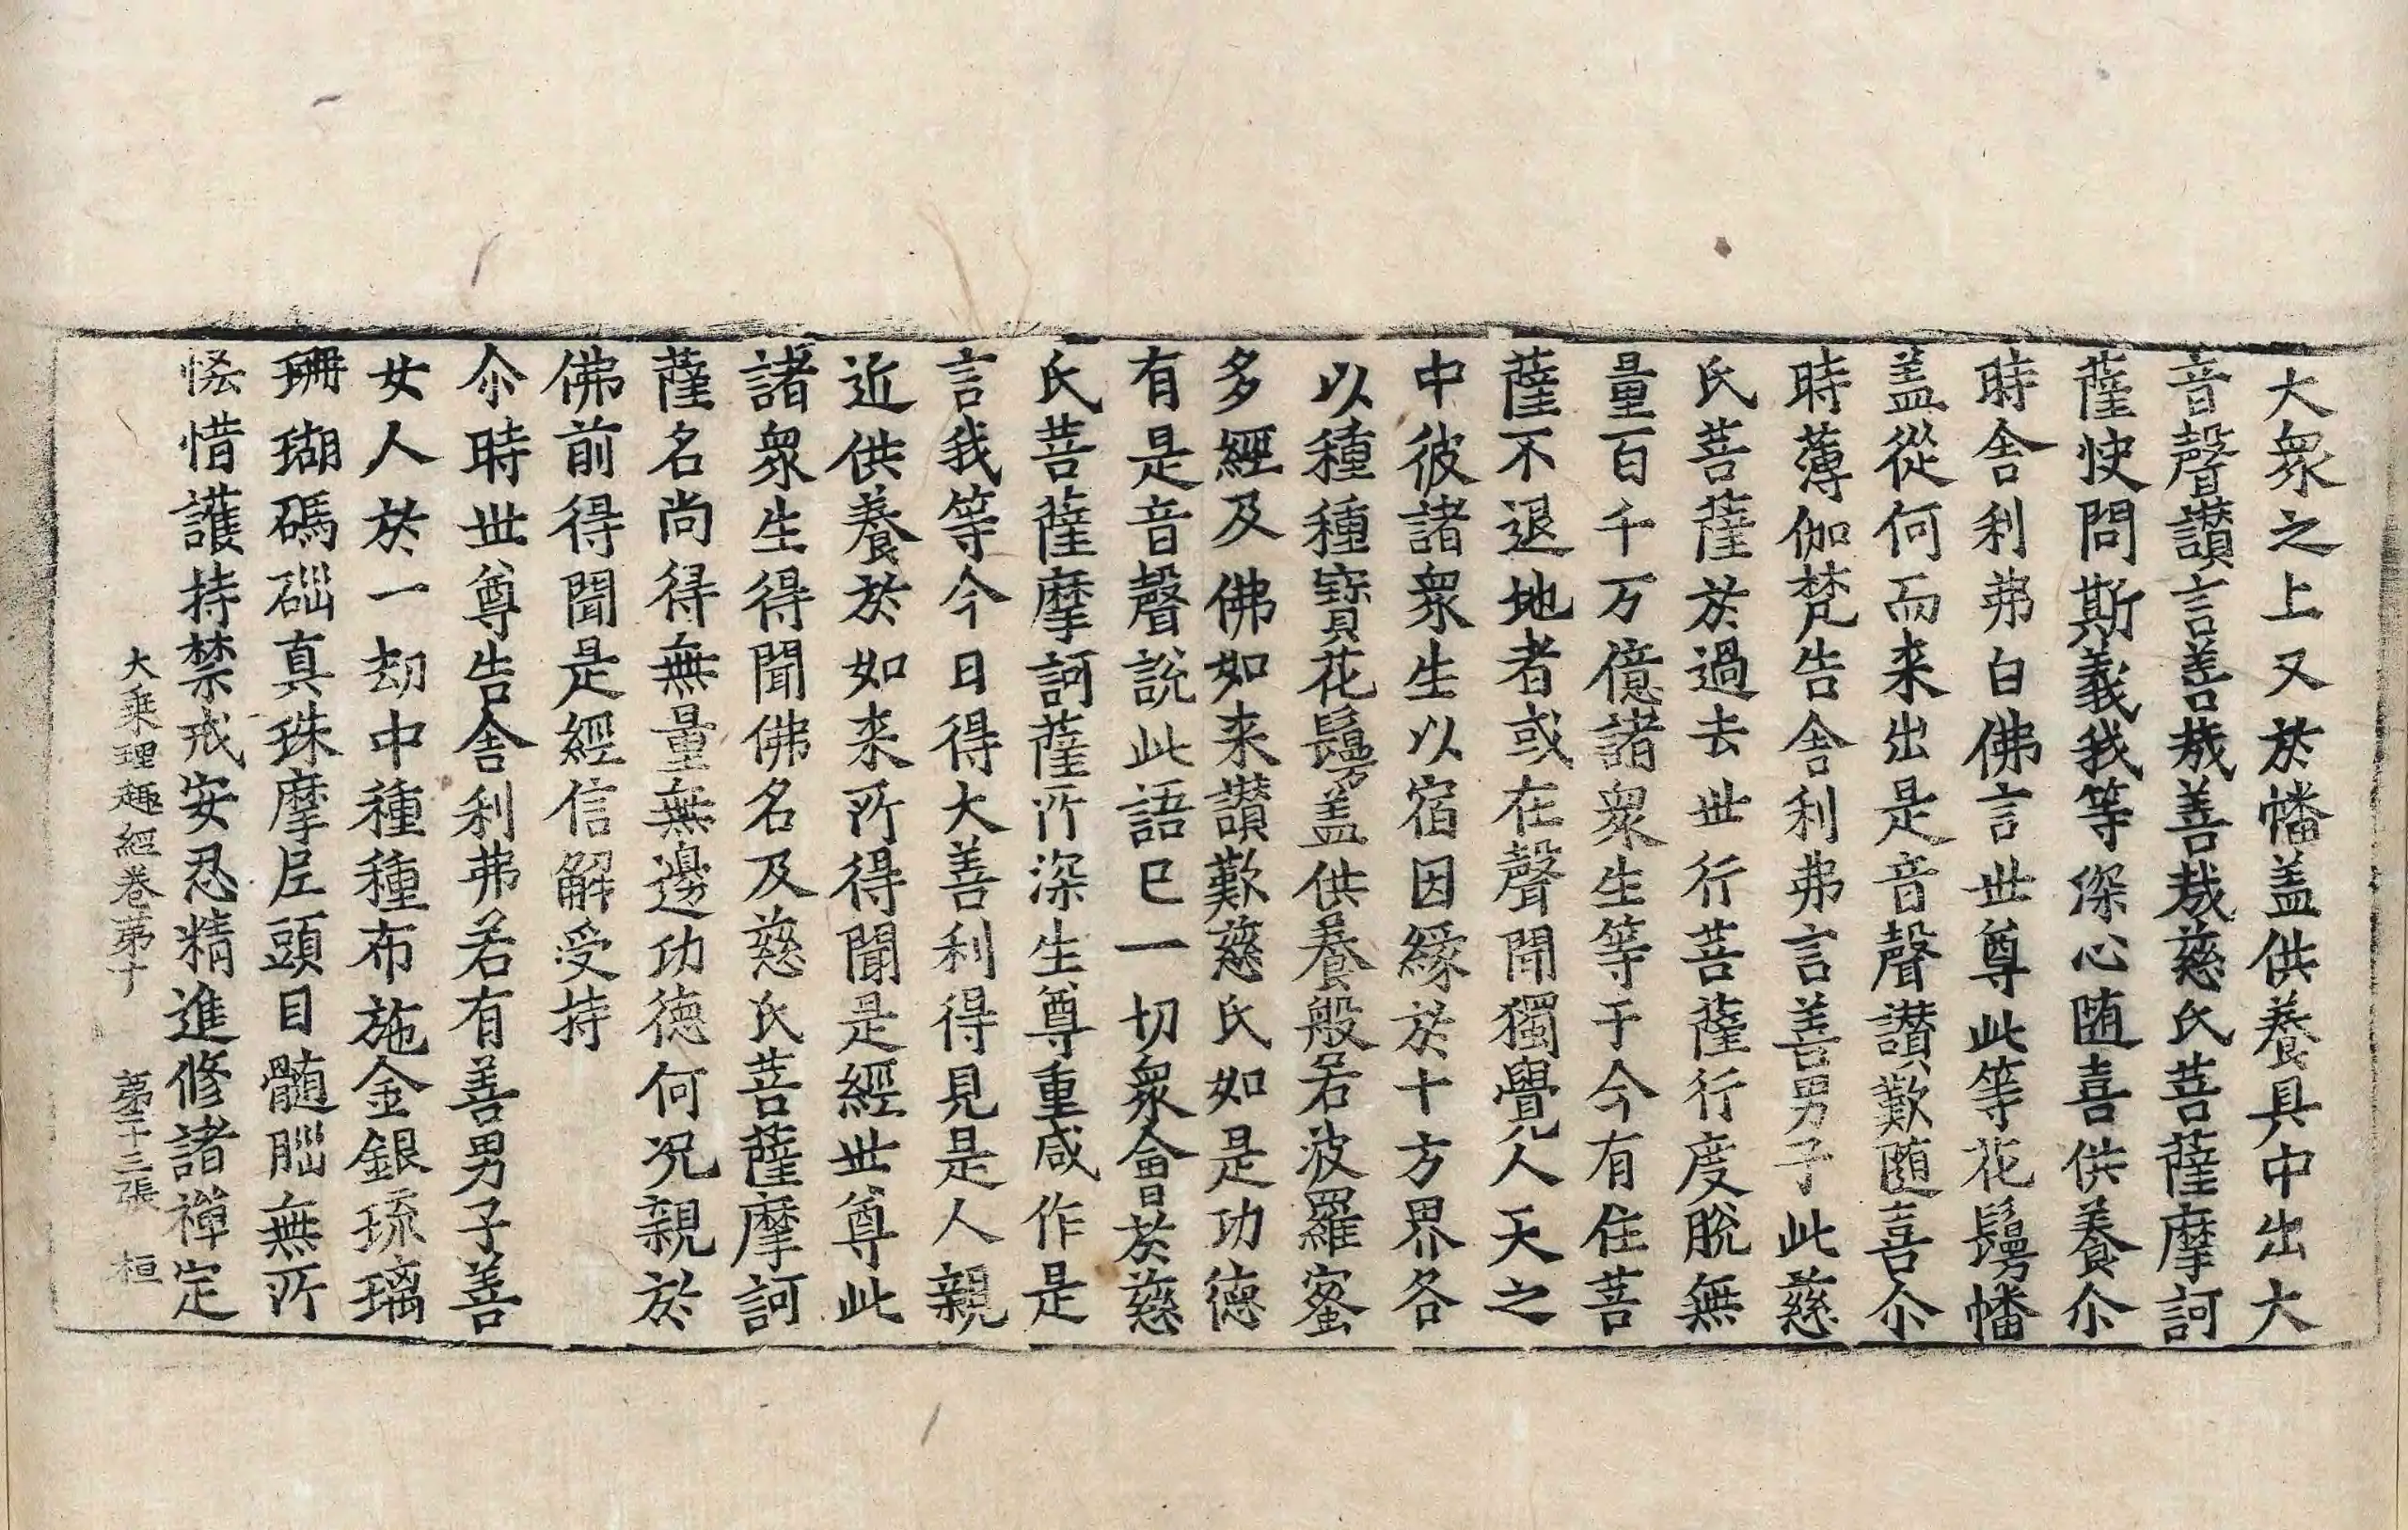 大衆之上又於幡盖供養具中出大
音聲讃言善㢤善㢤慈氏菩薩摩訶
薩快問斯義我等深心随喜供養尒
時舍利弗白佛言世尊此等花鬘幡
盖從何而来出是音聲讃歎随喜尒
時薄伽梵告舍利弗言善男子此慈
氏菩薩於過去世行菩薩行度脫無
量百千万億諸衆生等于今有住菩
薩不退地者或在聲聞獨覺人天之
中彼諸衆生以宿因緣於十方界各
以種種寶花鬘盖供養般若波羅蜜
多經及佛如来讃歎慈氏如是功德
有是音聲說此語已一切衆會於慈
氏菩薩摩訶薩所深生尊重咸作是
言我等今日得大善利得見是人親
近供養於如来所得聞是經世尊此
諸衆生得聞佛名及慈氏菩薩摩訶
薩名尚得無量無邊功德何况親於
佛前得聞是經信解受持
尒時世尊告舍利弗若有善男子善
女人於一劫中種種布施金銀琉璃
珊瑚碼碯真珠摩尼頭目髓腦無所
悋惜護持禁戒安忍精進修諸禅定
大乘理趣經卷苐十 苐十三張 桓